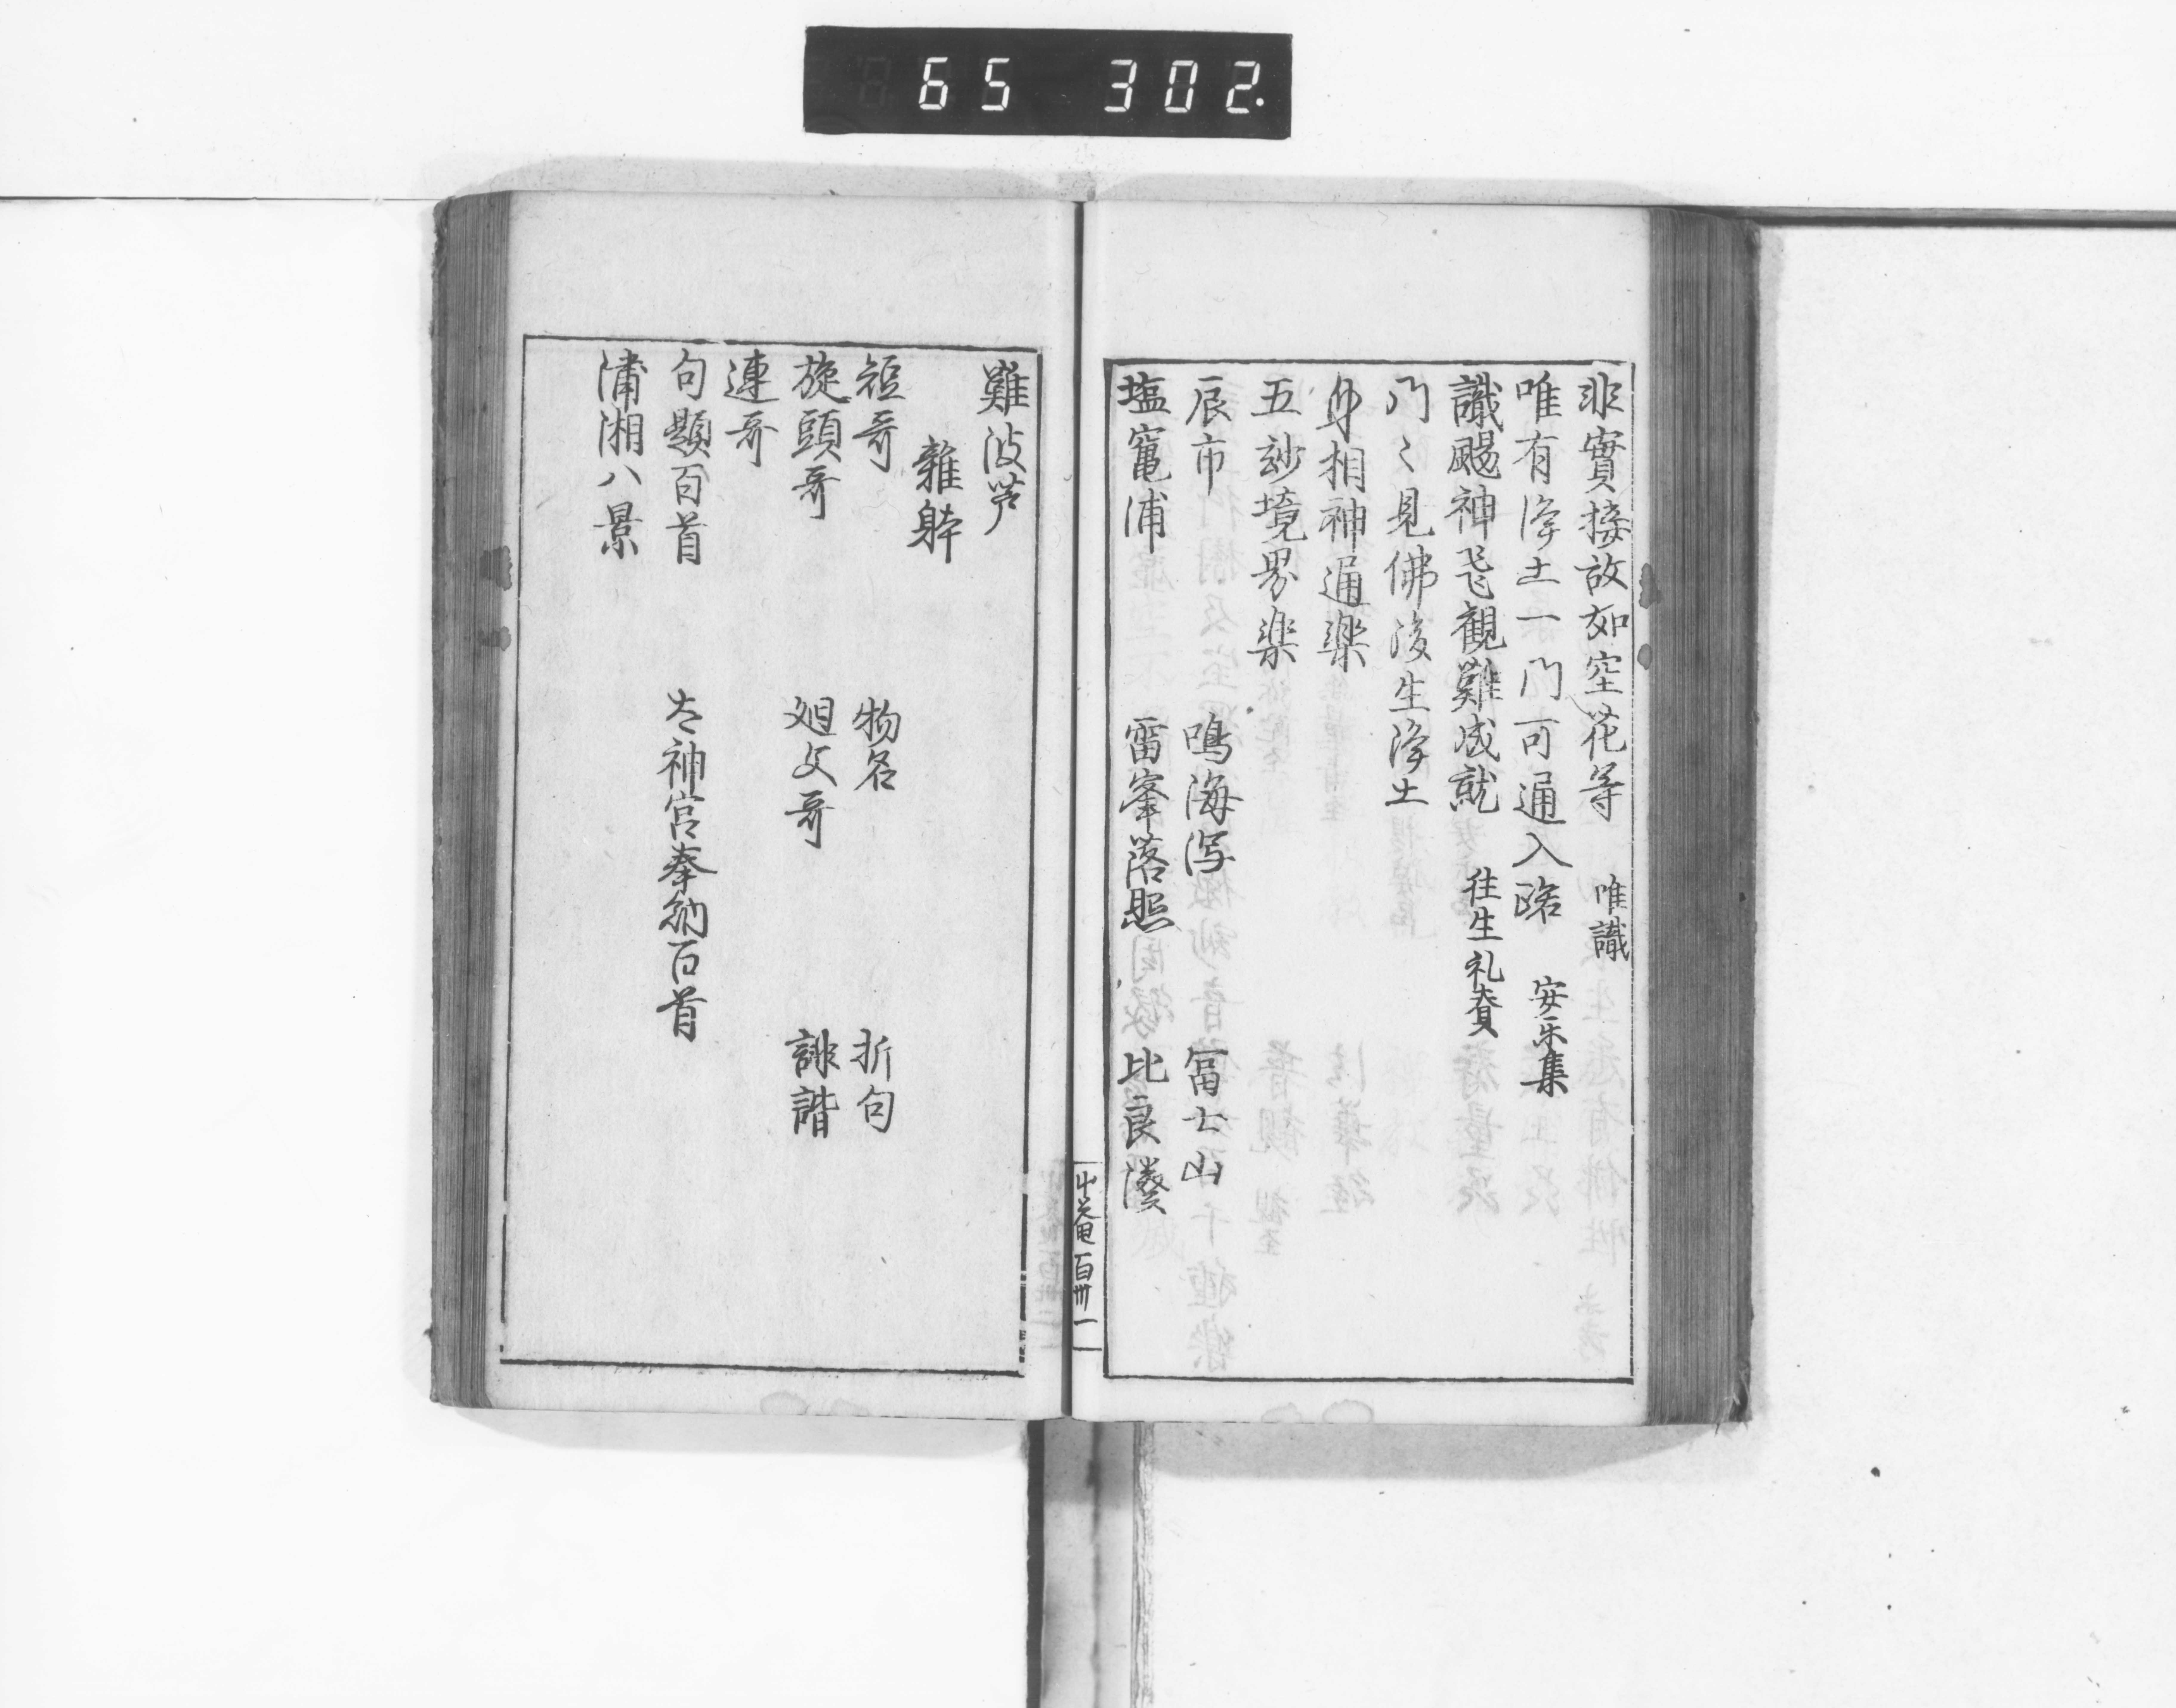 65 302.
非實接故如空花等 唯識
唯有淨土一門可通入路 安乐集
識颺神飛觀難成就 往生礼賛
門々見佛後生淨土
身相神通楽
五妙境界楽
辰市 鳴海潟 冨士山
塩竃浦 雷峯落照 比良湊
百卅一
難波芦
雜躰
短哥 物名 折句
旋頭哥 廻文哥 誹諧
連哥
句題百首 太神宮奉納百首
瀟湘八景